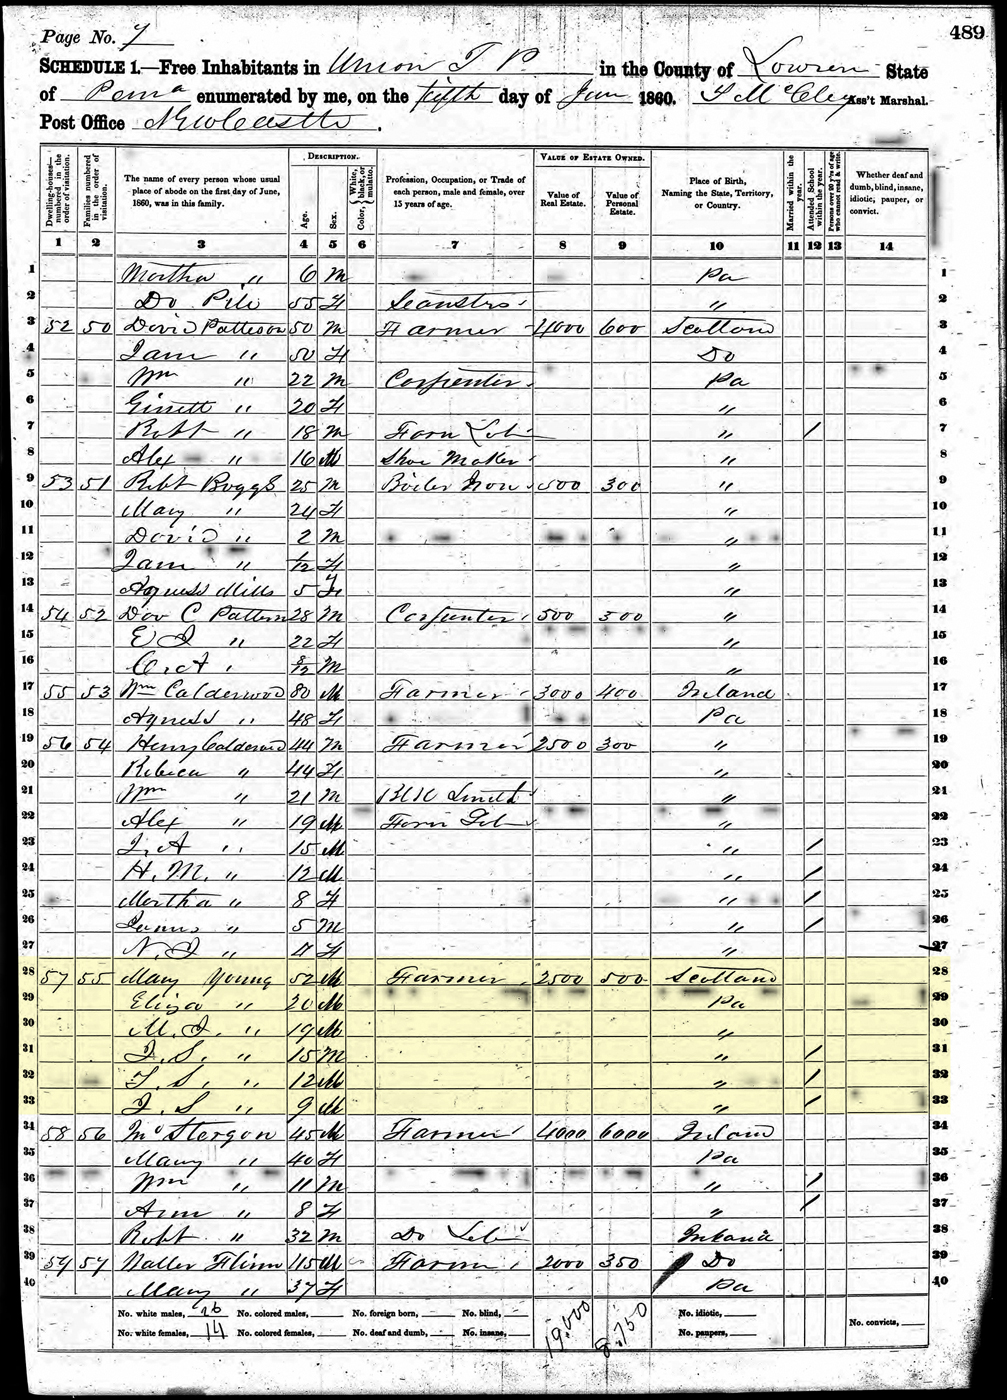 Page No. 7
489
SCHEDULE 1.—Free Inhabitants in Union T P in the County of Lowren State
of Penna enumerated by me, on the fifth day of Jun 1860. Ass't Marshal.
Post Office NewCastle.
DESCRIPTION. VALUE OF ESTATE OWNED.
Dwelling-houses—numbered in the order of visitation. Families numbered in the order of visitation. The name of every person whose usual place of abode on the first day of June, 1860, was in this family. Age. Sex. Color, {White, black, or mulatto. Profession, Occupation, or Trade of each person, male and female, over 15 years of age. Value of Real Estate. Value of Personal Estate. Place of Birth, Naming the State, Territory, or Country. Married within the year. Attended School within the year. Persons over 20 y'rs of age who cannot read & write. Whether deaf and dumb, blind, insane, idiotic, pauper, or convict.
1 2 3 4 5 6 7 8 9 10 11 12 13 14
1 Martha " 6 M Pa 1
2 Do Pile 55 F Seamstrs " 2
3 52 50 David Patteson 50 M Farmer 4000 600 Scotland 3
4 Jam " 50 F Do 4
5 Wm " 22 M Carpenter Pa 5
6 " 20 F " 6
7 Robt " 18 M Farm Leb " / 7
8 Alex " 16 M Shoe Maker " 8
9 53 51 Robt Boggs 25 M Boiler Iron 500 300 " 9
10 Mary " 24 F " 10
11 David " 2 M " 11
12 Jam " 1/12 F " 12
13 Agness Mills 5 F " 13
14 54 52 Dav C Pattern 28 M Carpenter 500 300 " 14
15 E J " 22 F " 15
16 C. A " 8/12 M " 16
17 55 53 Wm Calderwood 80 M Farmer 3000 400 Ireland 17
18 Agness " 48 F Pa 18
19 56 54 Henry Calderwod 44 M Farmer 2500 300 " 19
20 Rebeca " 44 F " 20
21 Wm " 21 M Blk Smith " 21
22 Alex " 19 M Farm Leb " 22
23 J. A " 15 M " / 23
24 H. M. " 12 M " / 24
25 Martha " 8 F " / 25
26 James " 5 M " / 26
27 N. J " 4 F " 27
28 57 55 Mary Young 52 M Farmer 2500 500 Scotland 28
29 Eliza " 20 M Pa 29
30 M. J. " 19 M " 30
31 J. S. " 15 M " / 31
32 T. S. " 12 M " / 32
33 J. S " 9 M " / 33
34 58 56 Jno Stergon 45 M Farmer 4000 6000 Ireland 34
35 Mary " 40 F Pa 35
36 Wm " 11 M " / 36
37 Ann " 8 F " / 37
38 Robt " 32 M Do Leb Ireland 38
39 59 57 Flinn 45 M Farm 2000 350 Do 39
40 Mary " 37 F Pa 40
No. white males, 26 No. colored males, No. foreign born, No. blind, 19,000 8,750 No. idiotic, No. convicts,
No. white females, 14 No. colored females, No. deaf and dumb, No. insane, No. paupers,